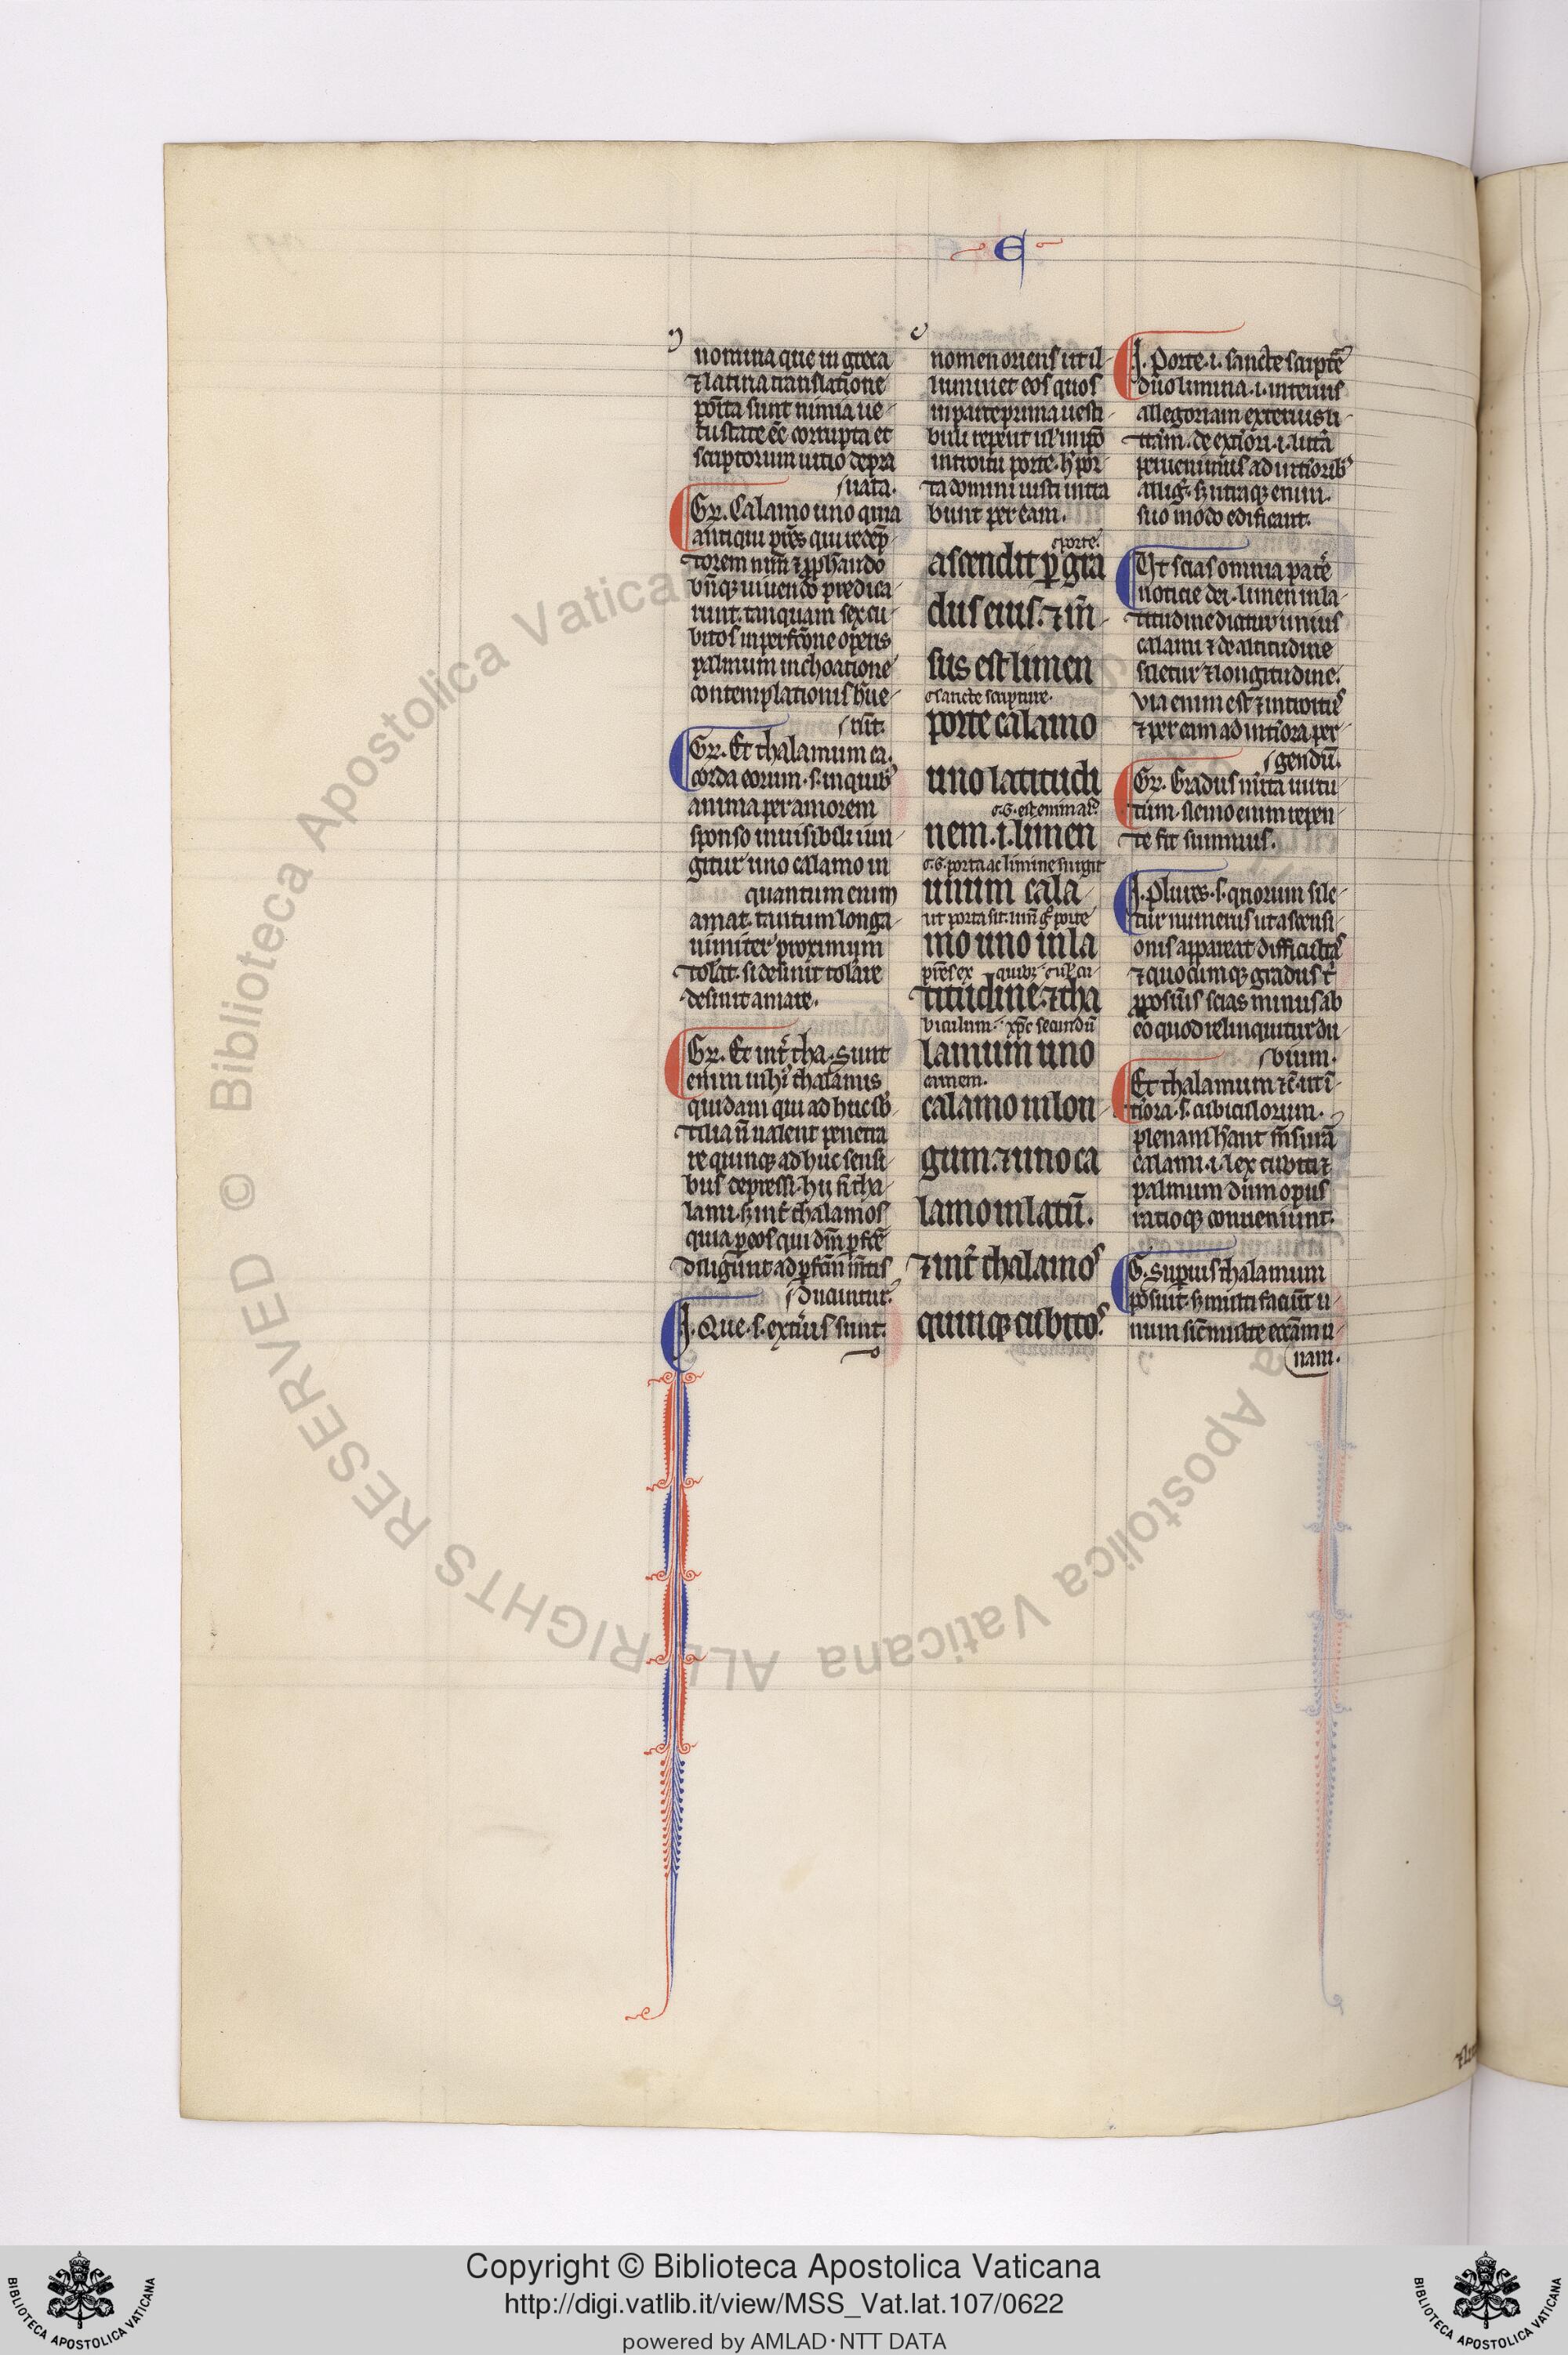 E
nomina que in greca
⁊ latina translatione
posita sunt nimia ue-
tustate eē corrupta et
scriptorum uitio depra
uata.
Gr̄. Calamo uno quia
antiqui prēs qui redēp-
torem nrm̄ ⁊ ꝓphando
bn̄q; uiuendo predica-
runt. tanquam sex cu-
bitos in perfectōne operis
palmum inchoatione
contemplationis hūe-
runt.
Gr̄. Et thalamum ca.
corda eorum .s. in quib᷒
anima per amorem
sponso inuisibili iun-
gitur uno calamo in
quantum enim
amat. tantum longa-
nimiter proximum
tolat. si desinit tolare
desinit amare.
Gr̄. Et int̄ tha. Sunt
enim in hi᷒ thalamis
quidam qui ad huc sb-
tilia n̄ ualent penetra
re quinq; ad huc sensi-
bus depressi. hii n̄ tha-
lami. sꝫ int̄ thalamos
quia ꝑ eos qui dm̄ ꝑfc̄e
diligunt ad ꝑfcam̄ m̄tis
ducuntur.
I. Que .s. extīus sunt.
nomen oriens ut il-
luminet eos quos
in parte prima uesti-
buli repent ul' in ipō
introitu porte. h᷒ por-
ta domini iusti intra
bunt per eam.
c. porte.
ascendit ꝑ gra
dus eius. ⁊ m̄-
sus est limen
c. sancte scripture.
porte calamo
uno latitudi
c. G. est enim ac̄.
nem .i. limen
c. G. porta ac limine surgit
unum cala-
ut porta sit. un̄ g᷒ porte
mo uno in la
prēs ex quibꝫ c. ul' cu-
titudine. ⁊ tha
biculum. xpc̄ secundū
lamum uno
carnem.
calamo in lon-
gum. ⁊ uno ca
lamo in latū.
⁊ int̄ thalamos
quinq; cubitos.
I. Porte .i. sancte scriptē
duo limina .i. interius
allegoriam exterius li-
ttam̄. de extīori .i. littā
peruenimus ad intīorib᷒
allig᷒. sꝫ utraq; enim.
suo modo edificant.
Ut scias omnia patē
noticie dei. limen in la-
titudine dicitur unius
calami ⁊ de altitudine
siletur ⁊ longitudine.
via enim est ⁊ introitus
⁊ per eam ad intīora per-
gendū.
Gr̄. Gradus mīta uirtu-
tum. Nemo enim repen-
te fit summus.
I. Plures .s. quorum sile-
tur numerus ut ascensi-
onis appareat difficultas
⁊ quocumq; gradus t̄
ꝓposūis scias minus ab
eo quod relinquitur du-
bium.
Et thalamum ⁊c̄. ut ī-
tīora .s. cubiculorum.
plenam h̄ant m̄surā
calami .i. sex cubiti ⁊
palmum dum opus
ratioq; conueniunt.
G. Supius thalamum
posuit. sꝫ multi faciūt u-
num sic̄ multe ecc̄am u-
nam.
Copyright © Biblioteca Apostolica Vaticana
http://digi.vatlib.it/view/MSS_Vat.lat.107/0622
powered by AMLAD·NTT DATA
BIBLIOTECA APOSTOLICA VATICANA
BIBLIOTECA APOSTOLICA VATICANA
© Biblioteca Apostolica Vaticana ALL RIGHTS RESERVED